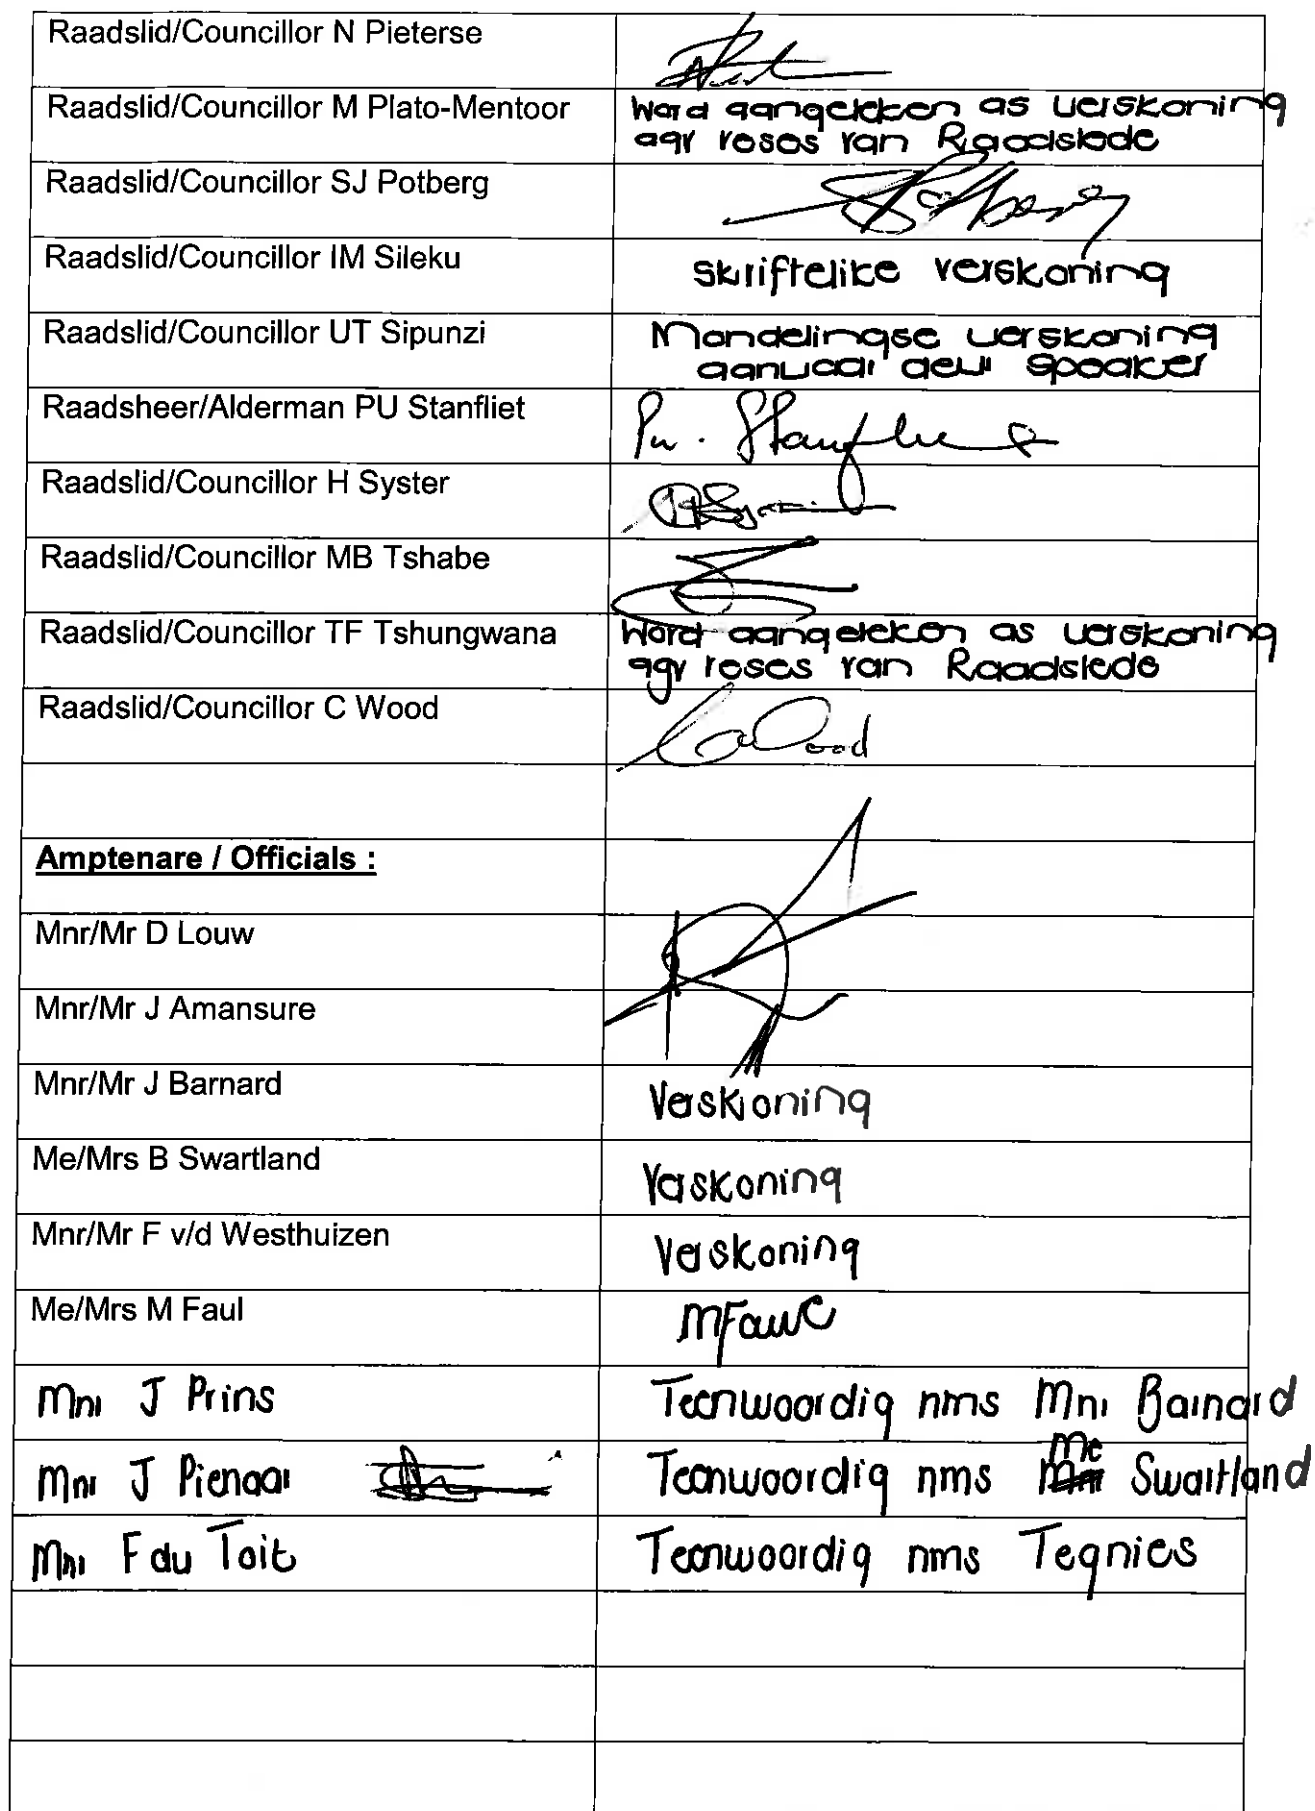 Raadslid/Councillor N Pieterse
Raadslid/Councillor M Plato-Mentoor
Word aangeteken as verskoning
agv reses van Raadslede
Raadslid/Councillor SJ Potberg
Raadslid/Councillor IM Sileku
skriftelike verskoning
Raadslid/Councillor UT Sipunzi
Mondelingse verskoning
aanvaar deur Speaker
Raadsheer/Alderman PU Stanfliet
Raadslid/Councillor H Syster
Raadslid/Councillor MB Tshabe
Raadslid/Councillor TF Tshungwana
Word aangeteken as verskoning
agv reses van Raadslede
Raadslid/Councillor C Wood
Amptenare / Officials :
Mnr/Mr D Louw
Mnr/Mr J Amansure
Mnr/Mr J Barnard
Verskoning
Me/Mrs B Swartland
Verskoning
Mnr/Mr F v/d Westhuizen
Verskoning
Me/Mrs M Faul
MFaul
Mnr J Prins
Teenwoordig nms Mnr Barnard
Mnr J Pienaar
Teenwoordig nms Me Swartland
Mnr F du Toit
Teenwoordig nms Tegnies